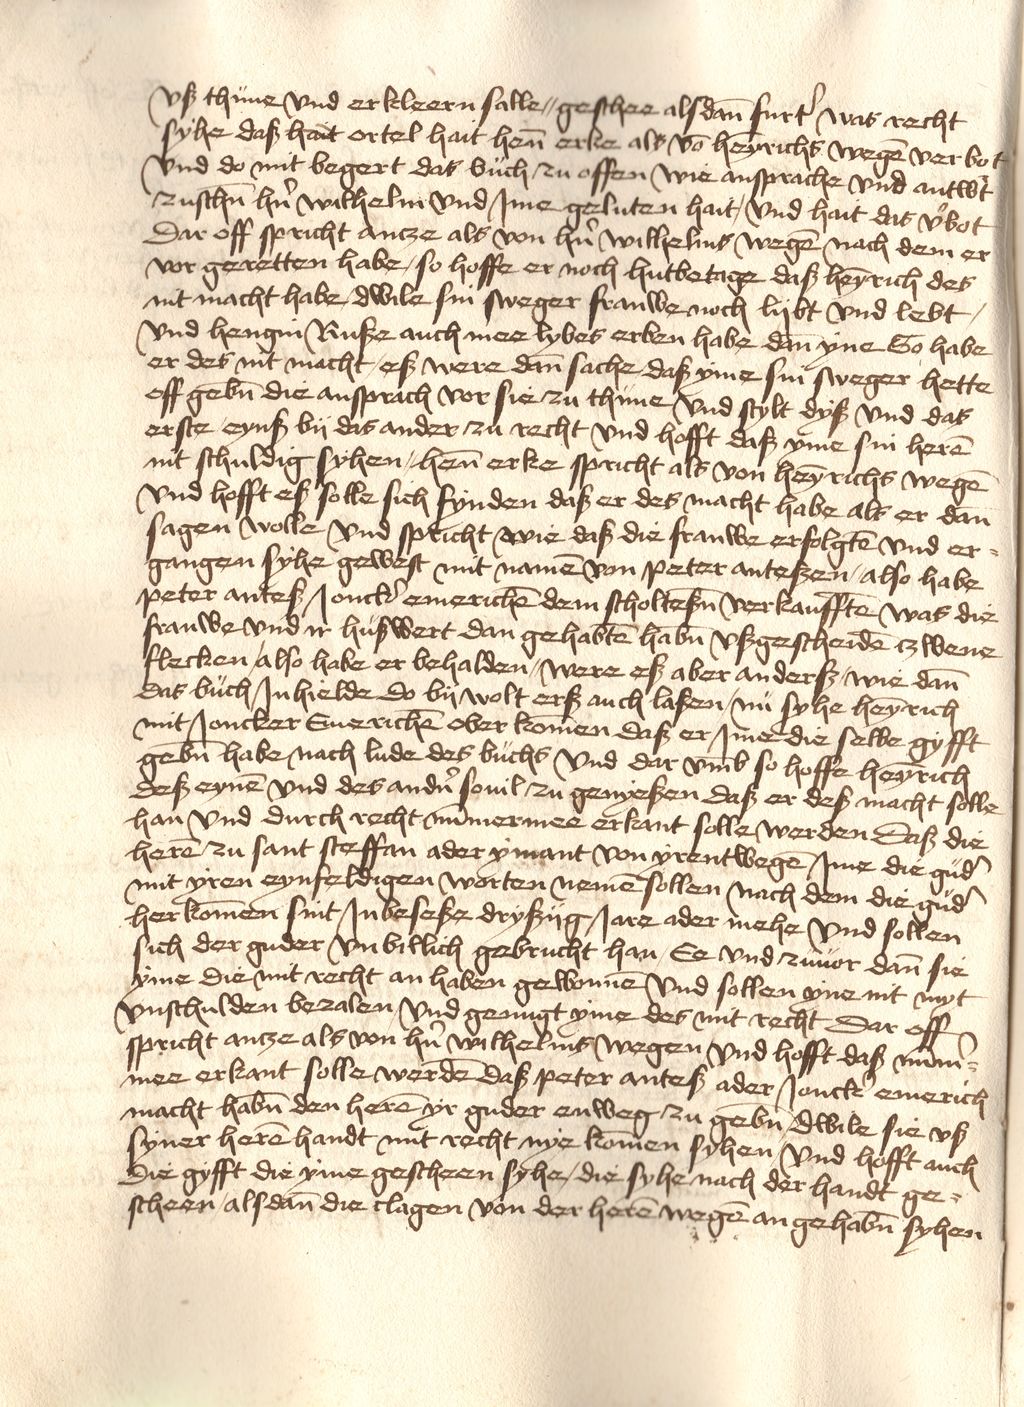 vß thune vnd erkleern salle // geschee alsdan̄ furt' was recht
syhe daß hait ortel hait hen̄ erke als vō heyrichs wegē verbot
vnd do mit begert das buch zu offen wie ansprache vnd antw't
zuschn̄ hr̄ wilhelm vnd Ime geluten hait / vnd hait das v'bot
Dar off spricht ancze als von hr̄ wilhelms wegē nach dem er
vor geretten habe / so hoffe er noch hutbetage daß heyrich des
nit macht habe / dwile sin sweger frauwe noch lybt vnd lebt /
vnd hengin Ruße auch mee lybes erben habe dan̄ yne So habe
er des nit macht / eß were dan̄ sache daß yme sin sweger hette
off gebn̄ die ansprach vor sie zu thune vnd stylt dyß vnd das
erste eynß bij das ander zu recht vnd hofft daß yme sin herē
nit schuldig syhen / hen̄ erke spricht als von heyrichs wegē
vnd hofft eß solle sich fynden daß er des macht habe als er dan̄
sagen wolle vnd spricht wie daß die frauwe erfolgtē vnd er=
gangen syhe gewest mit namē von peter anteßen / also habe
peter anteß Jonck' emerichē dem scholteßn̄ verkaufftē was die
frauwe vnd ir hußwert dan gehabtē habn̄ vßgescheidē czwene
flecken / also habe er behalden / were eß aber anderß / wie dan̄
das buch Inhielde do bij wolt erß auch laßen / nu syhe heyrich
mit Joncker Emerichē oberkomen daß er Ime die selbe gyfft
gebn̄ habe nach lude des buchs vnd dar vmb so hoffe heyrich
deß eynē vnd des andn̄ souil zu genyeßen daß er deß macht solle
han vnd durch recht nummermee erkant solle werden Daß die
herē zu sant steffan ader ymant von yrentwegē Ime die gud'
mit yren eynfeldigen worten nemē sollen nach dem die gud'
herkomen sint Inbeseße dryßijg Jare ader mehe vnd sollen
sich der guder vnbillich gebrucht han / Ee vnd zuuor dan̄ sie
yme die mit recht an haben gewonnē vnd sollen yne nit myt
vnschulden bezalen vnd genugt yme des mit recht Dar off
spricht ancze als von hr̄ wilhelms wegen vnd hofft daß num̄'=
mee erkant solle werdē daß peter anteß ader Jonck' emerich
macht habn̄ den herē yr guder enweg zu gebn̄ / dwile sie vß
syner herē handt mit recht nye komen syhen / vnd hofft auch
die gyfft die yme gescheen syhe / die syhe nach der handt ge=
scheen / alsdan̄ die clagen von der herē wegē angehabn̄ syhen